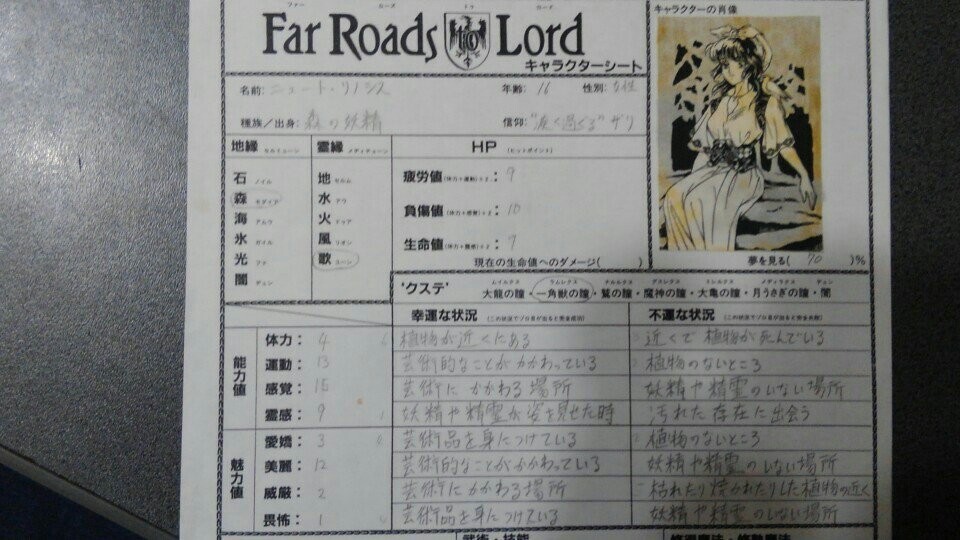 ファー ローズ トゥ ロード
Far Roads Lord
キャラクターシート
キャラクターの肖像
名前: シュート・リノシス 年齢: 16 性別: 女性
種族/出身: 森の妖精 信仰: "過ぐる" ザリ
地縁 霊縁 HP (ヒットポイント)
石 ノイル 地 セルム 疲労値 (体力+運動)÷2 : 9
森 水 アウ
海 アルウ 火 負傷値 (体力+感覚)÷2 : 10
氷 ガイル 風 リオン
光 歌 ユーン 生命値 (体力+霊感)÷2 : 7
闇 現在の生命値へのダメージ( )
夢を見る( 70 )%
'クステ' 大龍の瞳・一角獣の瞳・鷲の瞳・魔神の瞳・大亀の瞳・月うさぎの瞳・闇
幸運な状況 (この状況でゾロ目が出ると完全成功) 不運な状況 (この状況でゾロ目が出ると完全失敗)
能力値
体力: 4 植物が近くにある 近くで植物が死んでいる
運動: 13 芸術的なことがかかわっている 植物のないところ
感覚: 15 芸術にかかわる場所 妖精や精霊のいない場所
霊感: 9 妖精や精霊が姿を見せた時 汚れた存在に出会う
魅力値
愛嬌: 3 芸術品を身につけている 植物のないところ
美麗: 12 芸術的なことがかかわっている 妖精や精霊のいない場所
威厳: 2 芸術にかかわる場所 枯れたり焼かれたりした植物の近く
畏怖: 1 芸術品を身につけている 妖精や精霊のいない場所
武術・技能